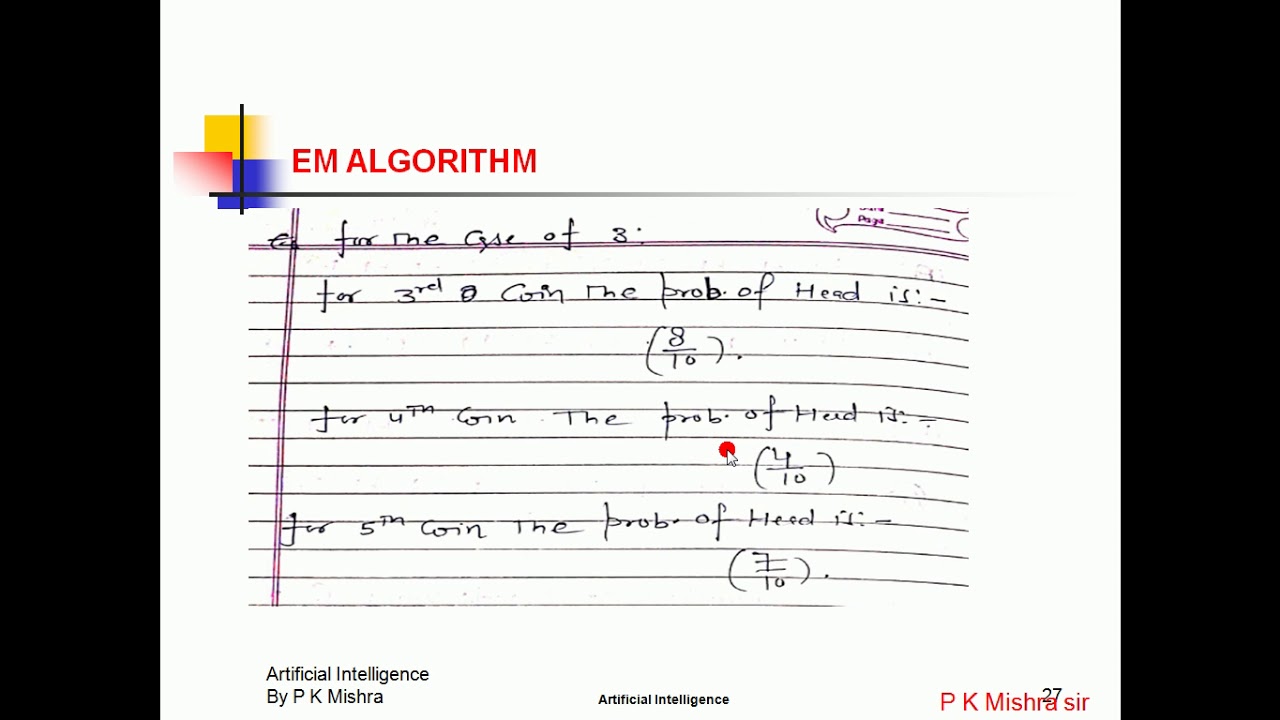 EM ALGORITHM
Page
for The Case of 3:
for 3rd Coin The prob. of Head is:-
(8/10).
for 4Th Coin The prob. of Head is:-
(4/10)
for 5Th Coin The prob. of Head is:-
(7/10).
Artificial Intelligence
By P K Mishra
Artificial Intelligence
27
P K Mishra sir